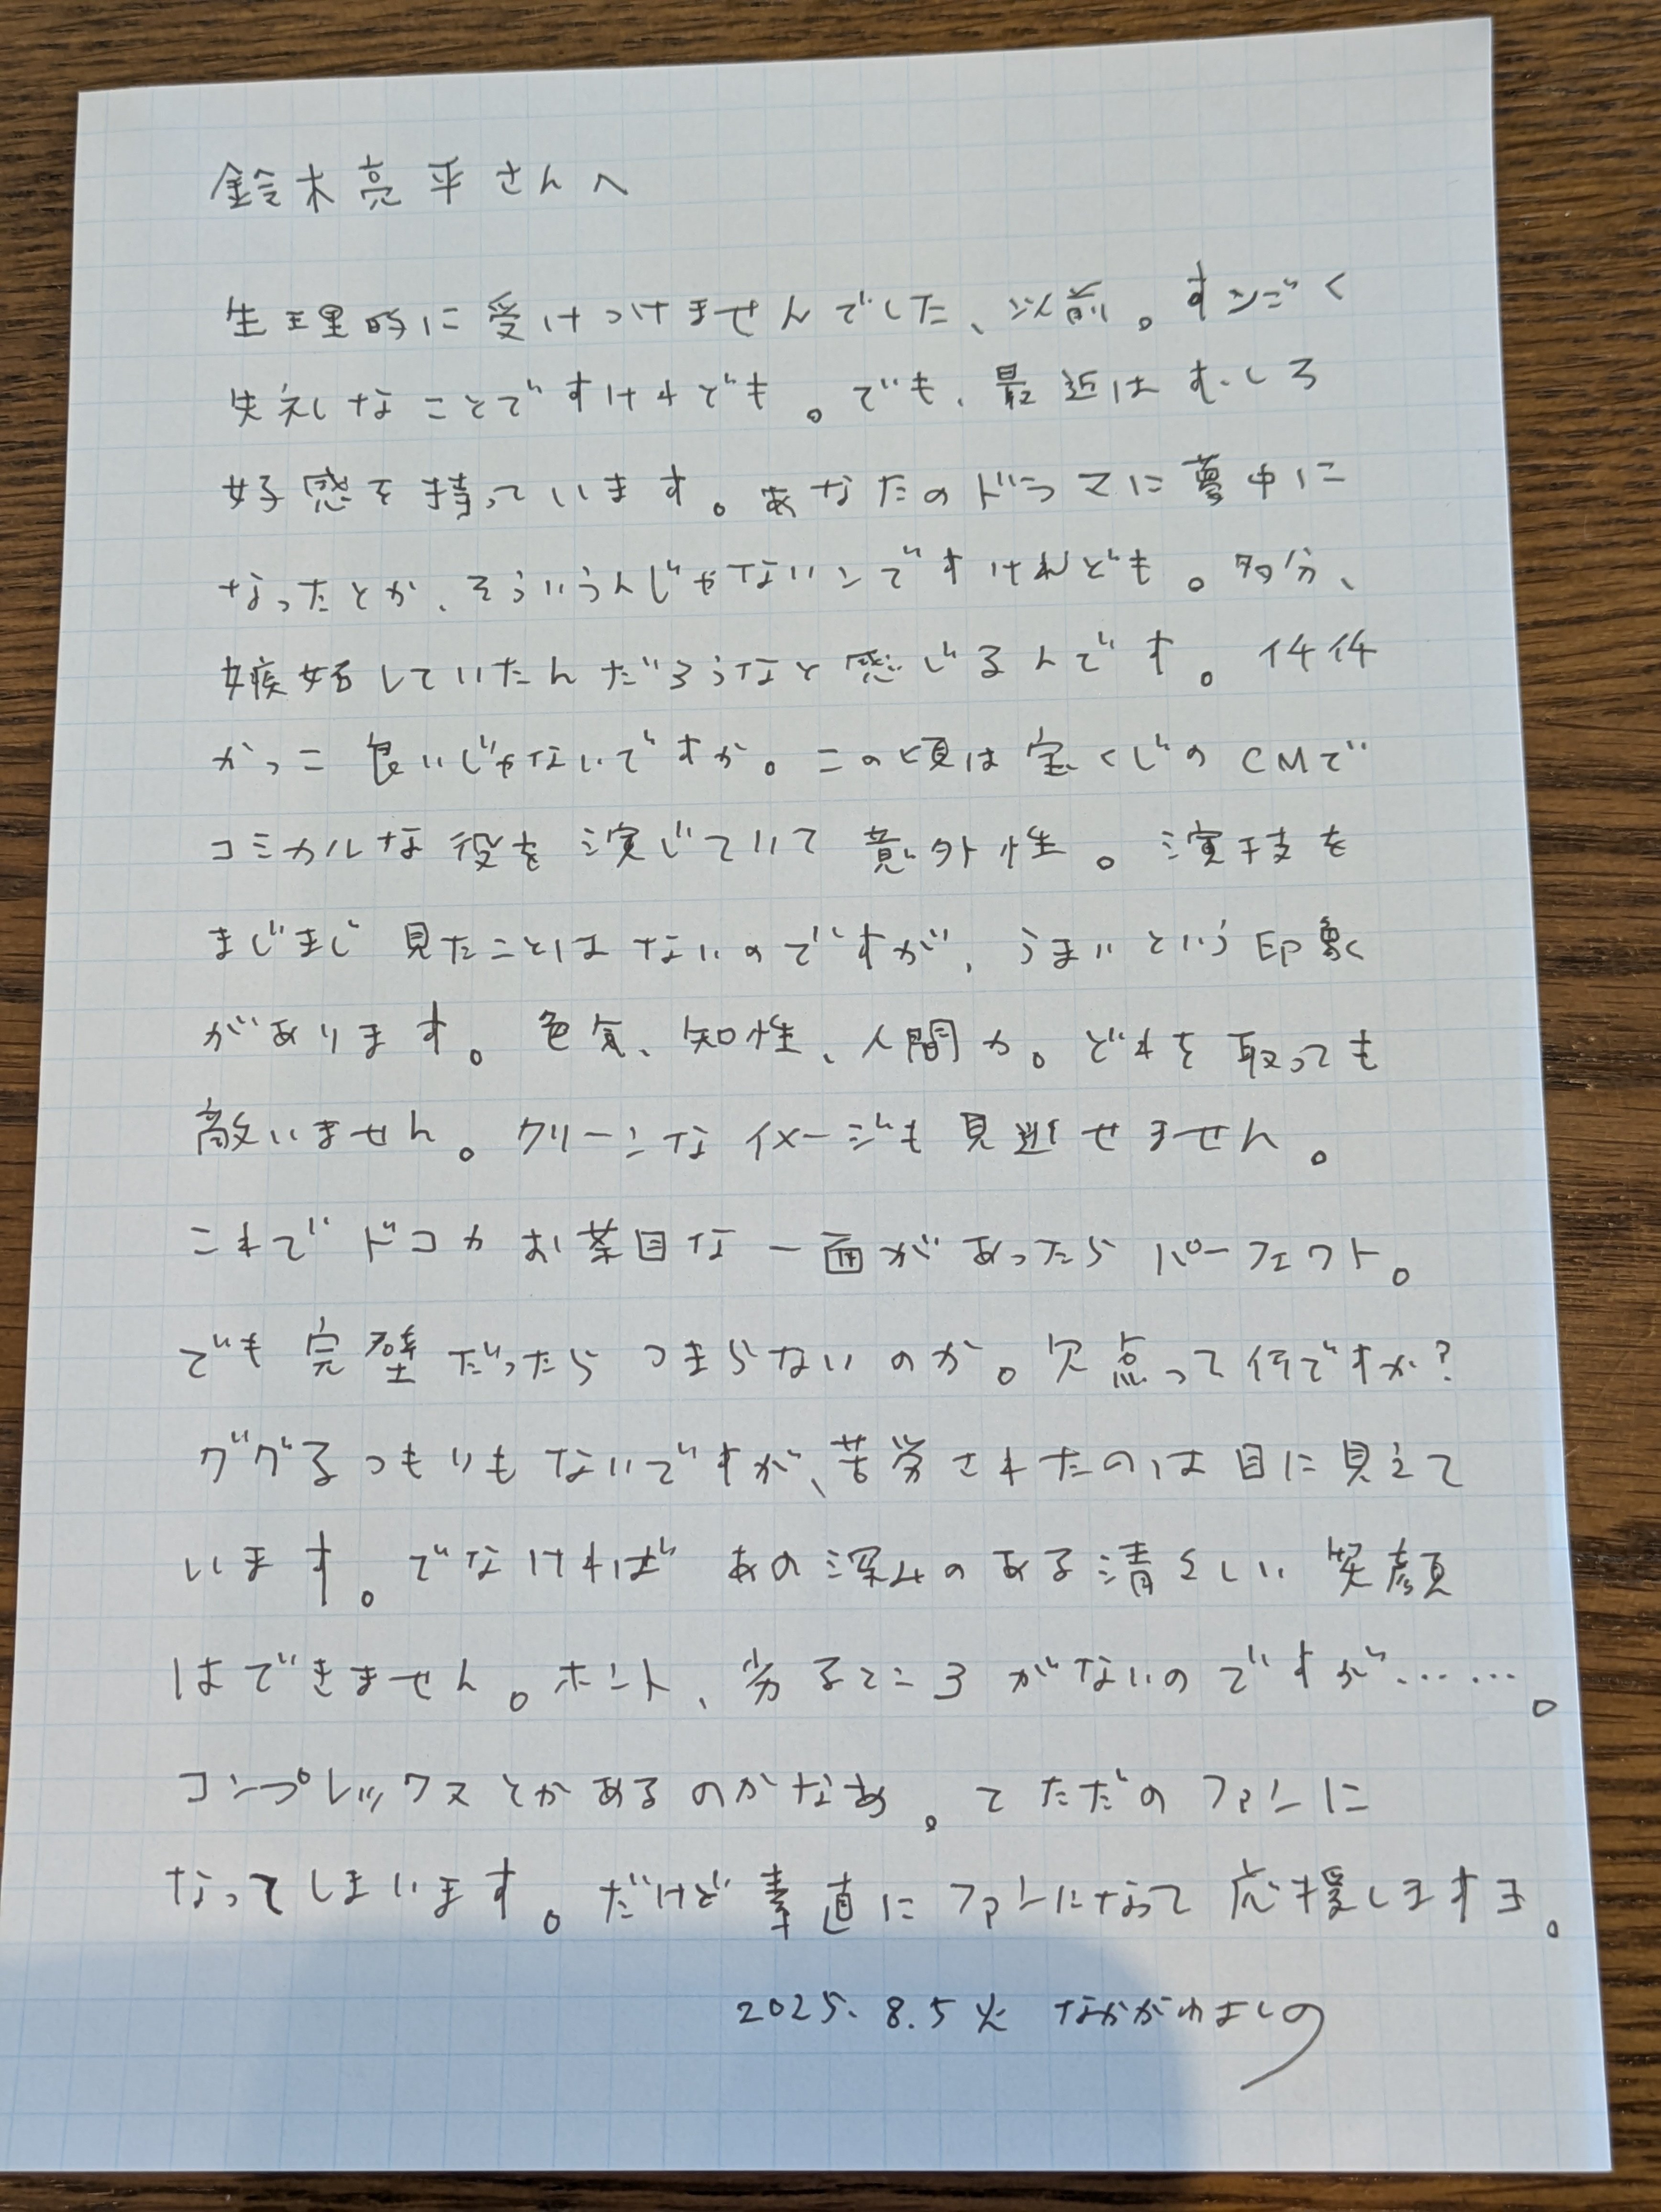 鈴木亮平さんへ
生理的に受けつけませんでした、以前。すンごく
失礼なことですけれども。でも、最近はむしろ
好感を持っています。あなたのドラマに夢中に
なったとか、そういうんじゃないンですけれども。多分、
嫉妬していたんだろうなと感じるんです。
かっこ良いじゃないですか。この頃は宝くじのCMで
コミカルな役を演じていて意外性。演技を
まじまじ見たことはないのですが、うまいという印象
があります。色気、知性、人間力。どれを取っても
敵いません。クリーンなイメージも見逃せません。
これでドコカお茶目な一面があったらパーフェクト。
でも完璧だったらつまらないのか。欠点って何ですか?
ググるつもりもないですが、苦労されたのは目に見えて
います。でなければあの深みのある清々しい笑顔
はできません。ホント、劣るところがないのですが……。
コンプレックスとかあるのかなあ。とただのファンに
なってしまいます。だけど素直にファンになって応援しますヨ。
2025.8.5火 なかがわよしの